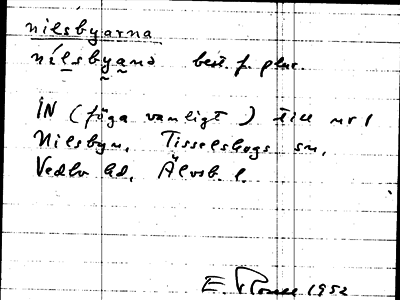 nilsbyarna
nílsbyanɷ best. f. plur.
IN (föga vanligt) till nr 1
Nilsbyn, Tisselskogs sn,
Vedbo hd, Älvsb. l.
E. 1952